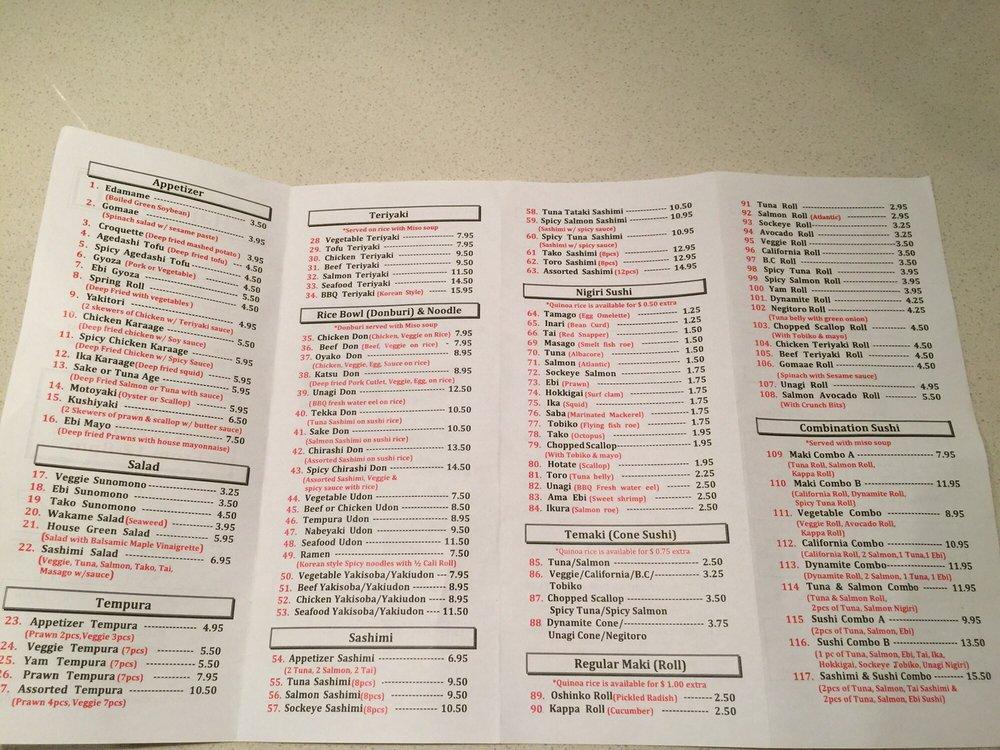 Appetizer
1. Edamame ---- 3.50
(Boiled Green Soybean)
2. Gomaae ---- 3.95
(Spinach salad w/ sesame paste)
3. Croquette (Deep fried mashed potato) 3.95
4. Agedashi Tofu (Deep fried tofu) - 4.50
5. Spicy Agedashi Tofu ---- 4.50
6. Gyoza (Pork or Vegetable) ---- 4.50
7. Ebi Gyoza ---- 5.50
8. Spring Roll ---- 4.50
(Deep Fried with vegetables)
9. Yakitori ---- 4.95
(2 skewers of Chicken w/ Teriyaki sauce)
10. Chicken Karaage ---- 5.95
(Deep fried chicken w/ Soy sauce)
11. Spicy Chicken Karaage ---- 5.95
(Deep Fried Chicken w/ Spicy Sauce)
12. Ika Karaage (Deep fried squid) ---- 5.95
13. Sake or Tuna Age ---- 5.95
(Deep Fried Salmon or Tuna with sauce)
14. Motoyaki (Oyster or Scallop) ---- 5.95
15. Kushiyaki ---- 6.50
(2 Skewers of prawn & scallop w/ butter sauce)
16. Ebi Mayo ---- 7.50
(Deep fried Prawns with house mayonnaise)
Salad
17. Veggie Sunomono ---- 3.25
18. Ebi Sunomono ---- 3.50
19 Tako Sunomono ---- 4.50
20. Wakame Salad (Seaweed) ---- 3.95
21. House Green Salad ---- 5.95
(Salad with Balsamic Maple Vinaigrette)
22. Sashimi Salad ---- 6.95
(Veggie, Tuna, Salmon, Tako, Tai,
Masago w/sauce)
Tempura
23. Appetizer Tempura ---- 4.95
(Prawn 2pcs,Veggie 3pcs)
24. Veggie Tempura (7pcs) ---- 5.50
25. Yam Tempura (7pcs) ---- 5.50
26. Prawn Tempura (7pcs) ---- 7.95
7. Assorted Tempura ---- 10.50
(Prawn 4pcs, Veggie 7pcs)
Teriyaki
*Served on rice with Miso soup
28 Vegetable Teriyaki ---- 7.95
29. Tofu Teriyaki ---- 7.95
30. Chicken Teriyaki ---- 9.50
31. Beef Teriyaki ---- 9.50
32. Salmon Teriyaki ---- 11.50
33. Seafood Teriyaki ---- 14.50
34. BBQ Teriyaki (Korean Style) ---- 15.95
Rice Bowl (Donburi) & Noodle
*Donburi served with Miso soup
35. Chicken Don(Chicken, Veggie on Rice) 7.95
36. Beef Don (Beef, Veggie on rice) - 7.95
37. Oyako Don ---- 8.95
(Chicken, Veggie, Egg, Sauce on rice)
38. Katsu Don ---- 8.95
(Deep fried Pork Cutlet, Veggie, Egg, on rice)
39. Unagi Don ---- 12.50
(BBQ fresh water eel on rice)
40. Tekka Don ---- 10.50
(Tuna Sashimi on sushi rice)
41. Sake Don ---- 10.50
(Salmon Sashimi on sushi rice)
42. Chirashi Don ---- 13.50
(Assorted Sashimi on sushi rice)
43. Spicy Chirashi Don ---- 14.50
(Assorted Sashimi, Veggie &
spicy sauce with rice)
44. Vegetable Udon ---- 7.50
45. Beef or Chicken Udon ---- 8.50
46. Tempura Udon ---- 8.95
47. Nabeyaki Udon ---- 9.50
48. Seafood Udon ---- 11.50
49. Ramen ---- 7.50
(Korean style Spicy noodles with ½ Cali Roll)
50. Vegetable Yakisoba/Yakiudon ---- 7.95
51. Beef Yakisoba/Yakiudon ---- 8.95
52. Chicken Yakisoba/Yakiudon ---- 8.95
53. Seafood Yakisoba/Yakiudon ---- 11.50
Sashimi
54. Appetizer Sashimi ---- 6.95
(2 Tuna, 2 Salmon, 2 Tai)
55. Tuna Sashimi(8pcs) ---- 9.50
56. Salmon Sashimi(8pcs) ---- 9.50
57. Sockeye Sashimi(8pcs) ---- 10.50
58. Tuna Tataki Sashimi ---- 10.50
59. Spicy Salmon Sashimi ---- 10.95
(Sashimi w/ spicy sauce)
60. Spicy Tuna Sashimi ---- 10.95
(Sashimi w/ spicy sauce)
61. Tako Sashimi (8pcs) ---- 12.95
62. Toro Sashimi (8pcs) ---- 12.95
63. Assorted Sashimi (12pcs) ---- 14.95
Nigiri Sushi
*Quinoa rice is available for $ 0.50 extra
64. Tamago (Egg Omelette) ---- 1.25
65. Inari (Bean Curd) ---- 1.25
66. Tai (Red Snapper) ---- 1.50
69. Masago (Smelt fish roe) ---- 1.50
70. Tuna (Albacore) ---- 1.50
71. Salmon (Atlantic) ---- 1.50
72. Sockeye Salmon ---- 1.75
73. Ebi (Prawn) ---- 1.75
74. Hokkigai (Surf clam) ---- 1.75
75. Ika (Squid) ---- 1.75
76. Saba (Marinated Mackerel) ---- 1.75
77. Tobiko (Flying fish roe) ---- 1.75
78. Tako (Octopus) ---- 1.95
79. Chopped Scallop ---- 1.95
(With Tobiko & mayo)
80. Hotate (Scallop) ---- 1.95
81. Toro (Tuna belly) ---- 2.25
82. Unagi (BBQ Fresh water eel) ---- 2.50
83. Ama Ebi (Sweet shrimp) ---- 2.50
84. Ikura (Salmon roe) ---- 2.50
Temaki (Cone Sushi)
*Quinoa rice is available for $ 0.75 extra
85. Tuna/Salmon ---- 2.50
86. Veggie/California/B.C/ ---- 3.25
Tobiko
87. Chopped Scallop ---- 3.50
Spicy Tuna/Spicy Salmon
88 Dynamite Cone/ ---- 3.75
Unagi Cone/Negitoro
Regular Maki (Roll)
*Quinoa rice is available for $ 1.00 extra
89. Oshinko Roll(Pickled Radish) ---- 2.50
90. Kappa Roll (Cucumber) ---- 2.50
91 Tuna Roll ---- 2.95
92 Salmon Roll (Atlantic) ---- 2.95
93 Sockeye Roll ---- 3.25
94 Avocado Roll ---- 3.50
95 Veggie Roll ---- 3.50
96 California Roll ---- 3.50
97 B.C Roll ---- 3.50
98 Spicy Tuna Roll ---- 3.95
99 Spicy Salmon Roll ---- 3.95
100 Yam Roll ---- 3.95
101. Dynamite Roll ---- 4.25
102 Negitoro Roll ---- 4.25
(Tuna belly with green onion)
103. Chopped Scallop Roll ---- 4.50
(With Tobiko & mayo)
104. Chicken Teriyaki Roll ---- 4.50
105. Beef Teriyaki Roll ---- 4.50
106. Gomaae Roll ---- 4.50
(Spinach with Sesame sauce)
107. Unagi Roll ---- 4.95
108. Salmon Avocado Roll ---- 5.50
(With Crunch Bits)
Combination Sushi
*Served with miso soup
109 Maki Combo A ---- 7.95
(Tuna Roll, Salmon Roll,
Kappa Roll)
110. Maki Combo B ---- 11.95
(California Roll, Dynamite Roll,
Spicy Tuna Roll)
111. Vegetable Combo ---- 8.95
(Veggie Roll, Avocado Roll,
Kappa Roll)
112. California Combo ---- 10.95
(California Roll, 2 Salmon,1Tuna,1 Ebi)
113. Dynamite Combo ---- 11.95
(Dynamite Roll, 2 Salmon, 1 Tuna, 1 Ebi)
114 Tuna & Salmon Combo ---- 11.95
(Tuna & Salmon Roll,
2pcs of Tuna, Salmon Nigiri)
115 Sushi Combo A ---- 9.95
(2pcs of Tuna, Salmon, Ebi)
116. Sushi Combo B ---- 13.50
(1 pc of Tuna, Salmon, Ebi, Tai, Ika,
Hokkigai, Sockeye Tobiko, Unagi Nigiri)
117. Sashimi & Sushi Combo ---- 15.50
(2pcs of Tuna, Salmon, Tai Sashimi &
2pcs of Tuna, Salmon, Ebi Sushi)